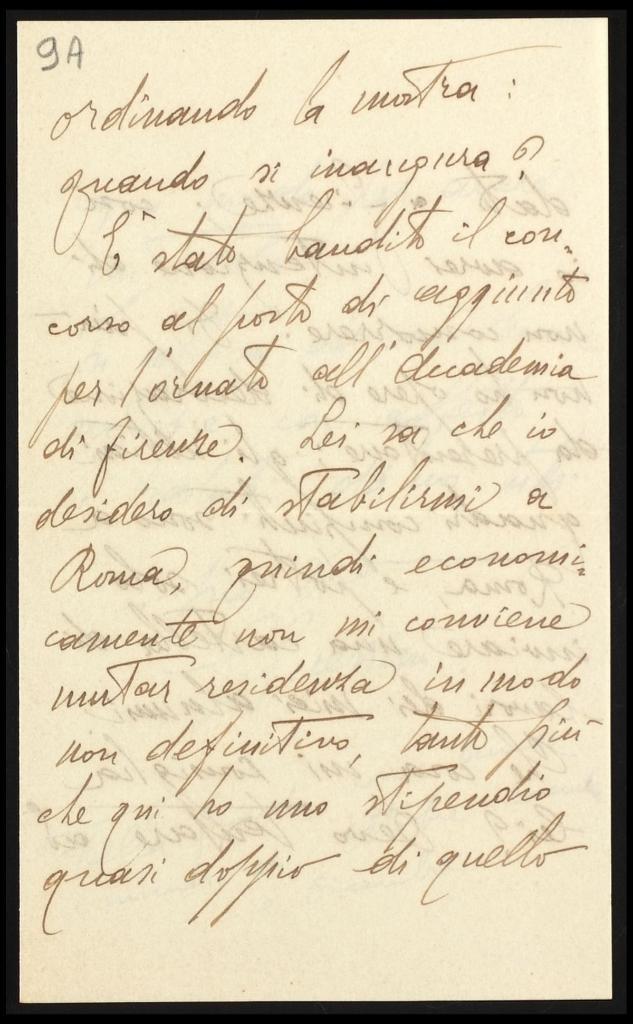 9A
ordinando la mostra:
quando si inaugura?
È stato bandito il con-
corso al posto di aggiunto
per l'ornato all'Accademia
di firenze. Lei sa che io
desidero di stabilirmi a
Roma, quindi economi-
camente non mi conviene
mutar residenza in modo
non definitivo, tanto più
che qui ho uno stipendio
quasi doppio di quello